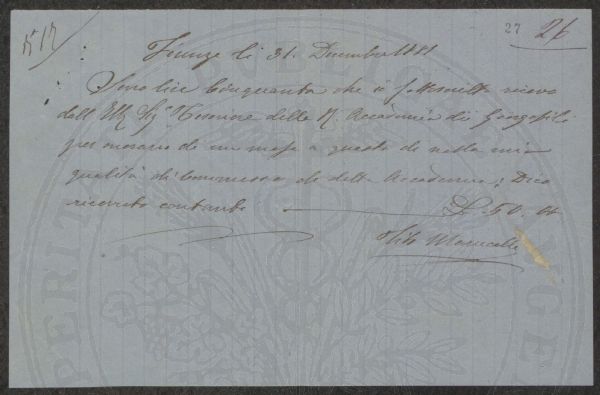 N 17
27 26
Firenze li 31. Dicembre 1881
Sono lire Cinquanta che io sottoscritto ricevo
dall' Ill. Sig. Tesoriere della R. Accademia dei Georgofili
per onorario di un mese a questo dì nella mia
qualità di Commesso di detta Accademia; Dico
ricevute contante L. 50.